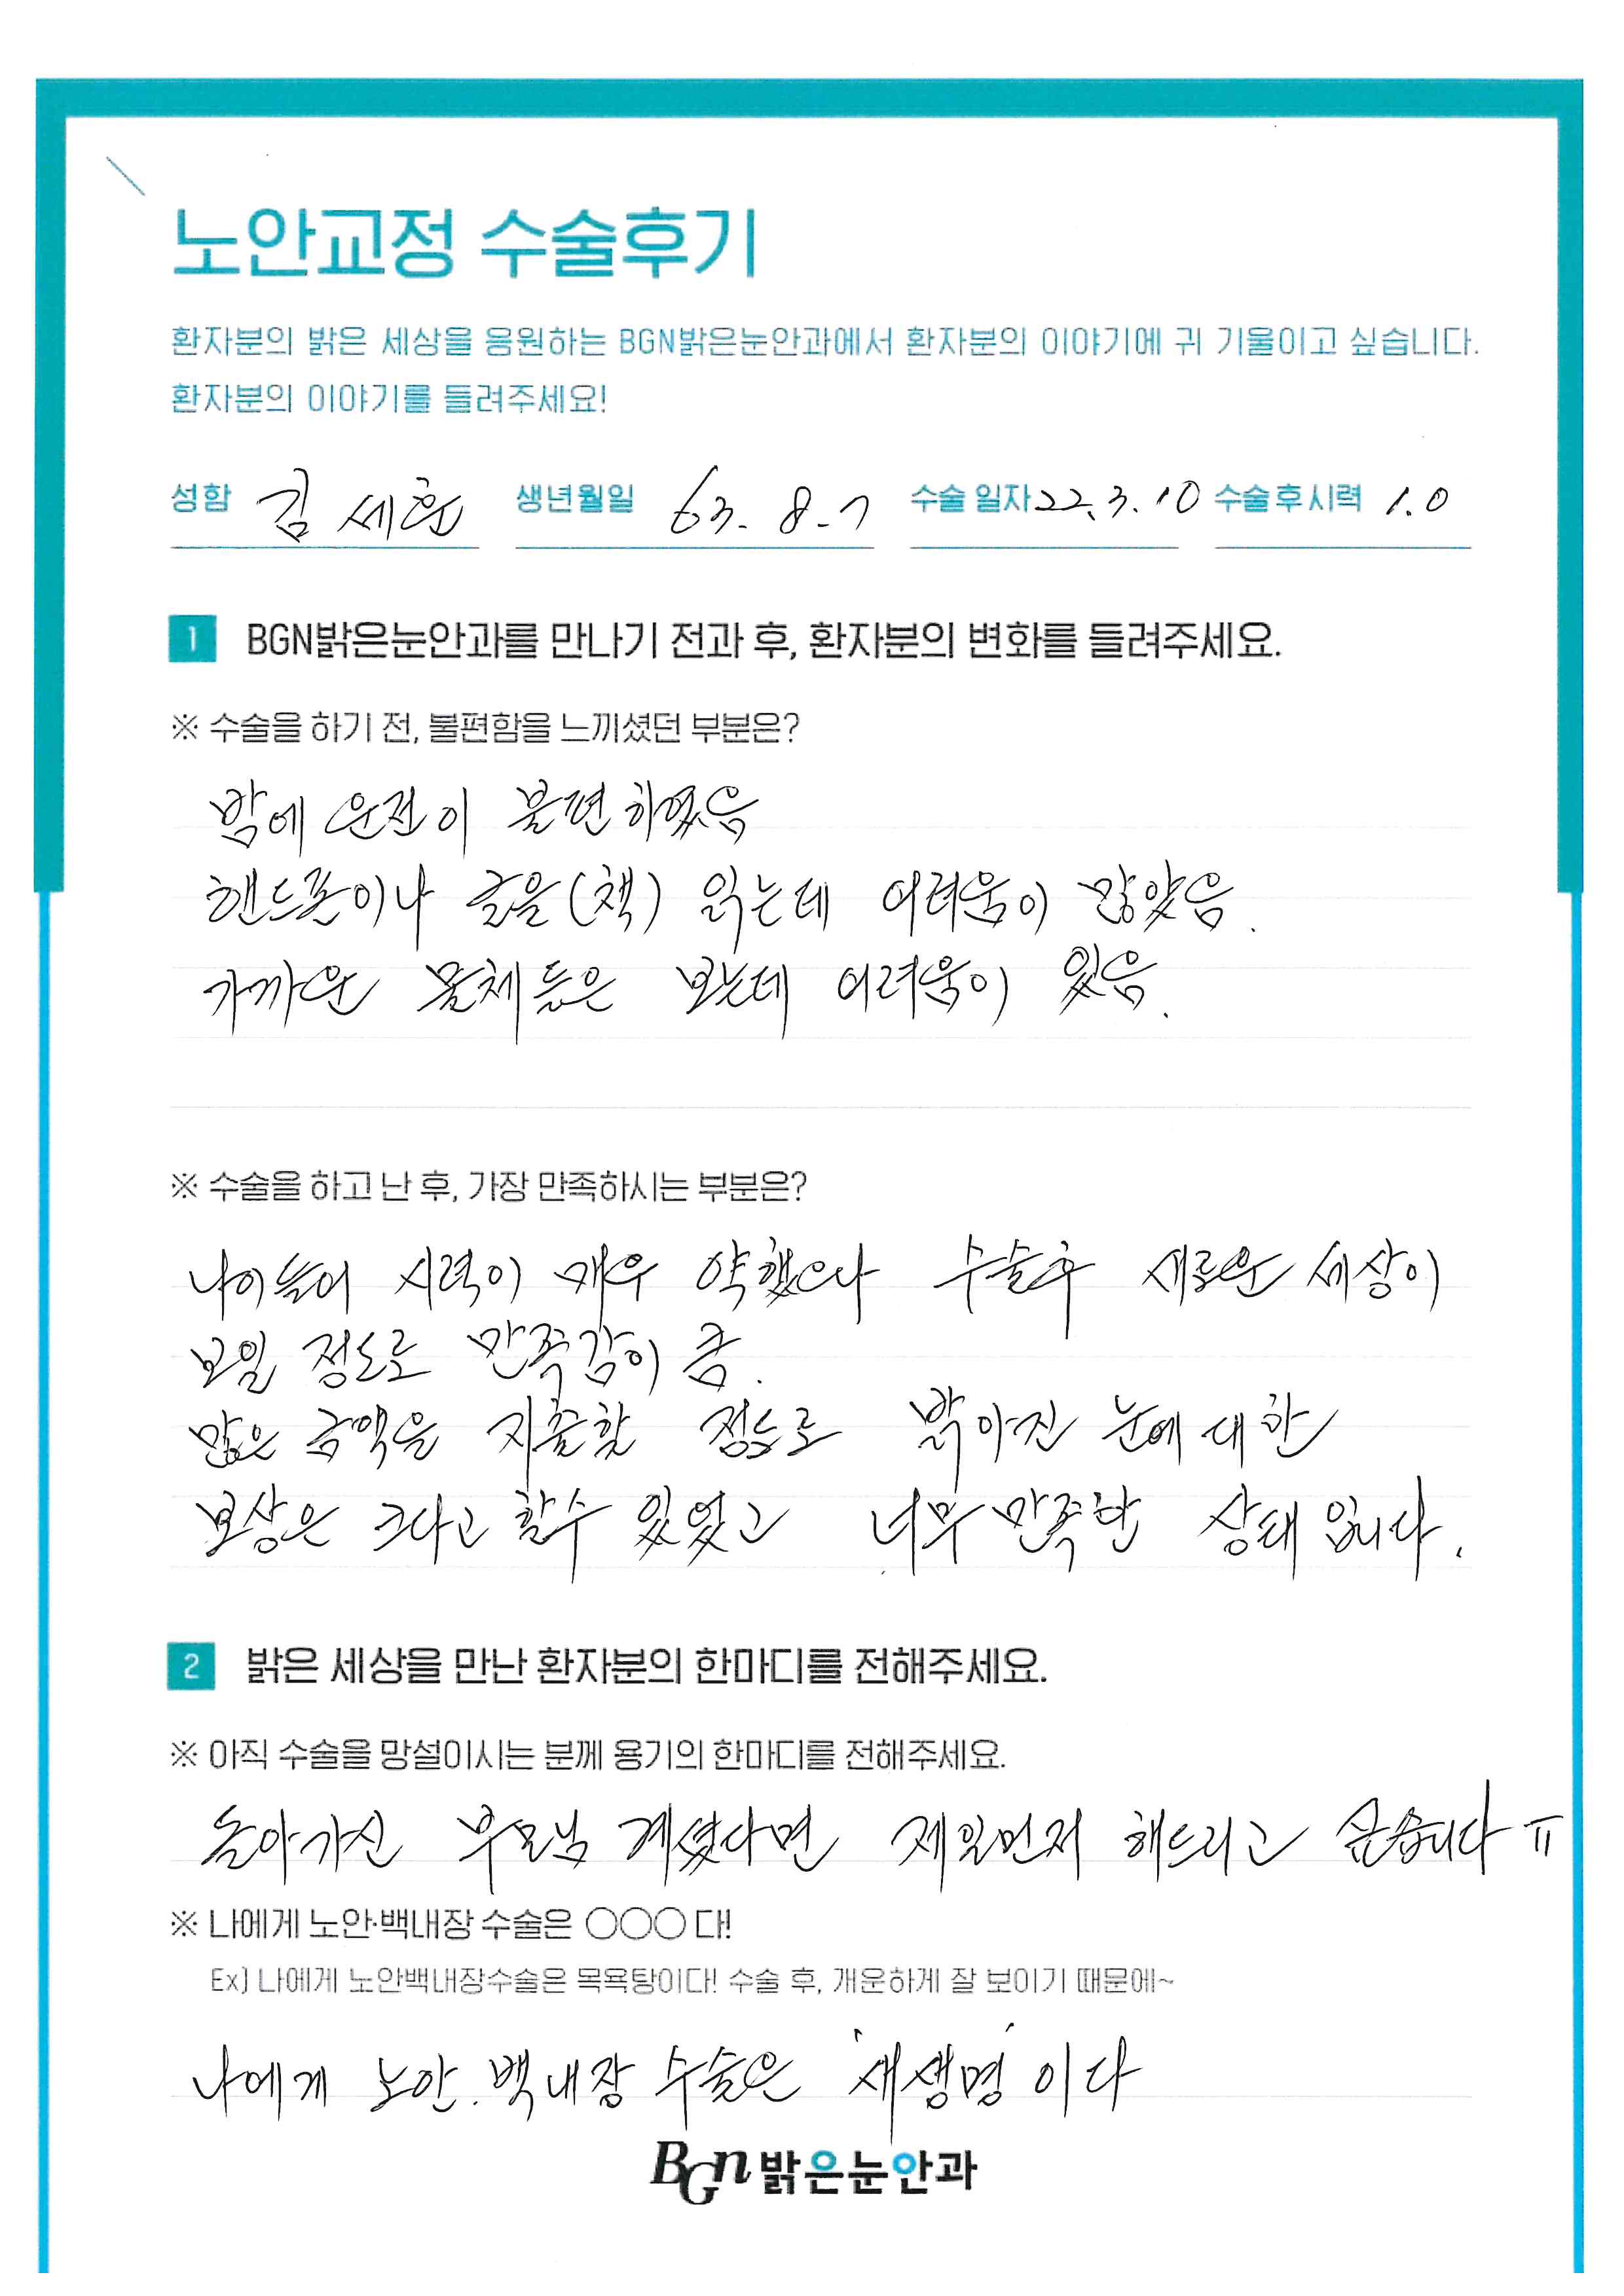 노안교정 수술후기
환자분의 밝은 세상을 응원하는 BGN밝은눈안과에서 환자분의 이야기에 귀 기울이고 싶습니다.
환자분의 이야기를 들려주세요!
성함 김세환 생년월일 63. 8. 7 수술 일자 22. 3. 10 수술 후 시력 1.0
1 BGN밝은눈안과를 만나기 전과 후, 환자분의 변화를 들려주세요.
※ 수술을 하기 전, 불편함을 느끼셨던 부분은?
밤에 운전이 불편하였음
핸드폰이나 글을(책) 읽는데 어려움이 많았음.
가까운 물체들은 보는데 어려움이 있음.
※ 수술을 하고 난 후, 가장 만족하시는 부분은?
나이들어 시력이 매우 약했으나 수술후 새로운 세상이
보일 정도로 만족감이 큼.
많은 금액을 지출할 정도로 밝아진 눈에 대한
보상은 크다고 할수 있었고 너무 만족한 상태 입니다.
2 밝은 세상을 만난 환자분의 한마디를 전해주세요.
※ 아직 수술을 망설이시는 분께 용기의 한마디를 전해주세요.
돌아가신 부모님 계셨다면 제일먼저 해드리고 싶습니다 ㅠ
※ 나에게 노안·백내장 수술은 ○○○ 다!
Ex) 나에게 노안백내장수술은 목욕탕이다! 수술 후, 개운하게 잘 보이기 때문에~
나에게 노안.백내장 수술은 '새생명' 이다
BGN 밝은눈안과